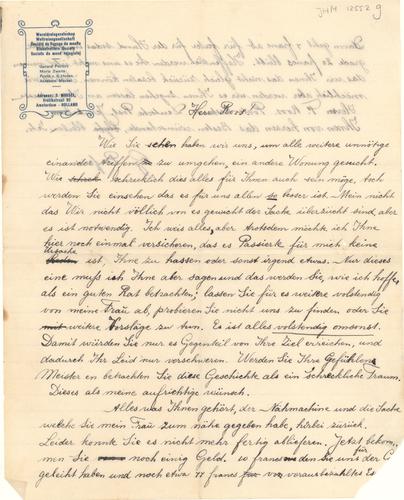 JHM 12552 g
Wereldreisgezelschap
Weltreisegesellschaft
Société de Voyage du monde
Gerard Perfors
Adresse: J. MOSSEL,
Amsterdam - HOLLAND
Herr Roos!
Wie Sie schön haben wir uns, um alle weitere unnötige
einander treffen zu umgehen, ein ander Wonung gesucht.
Wie schrecklich dies alles für Ihnen auch sein möge, toch
werden Sie einsehen das es für uns allen so besser ist. Mein nicht
das Wir nicht völlich von es gewicht der Sache überzücht sind, aber
es ist notwendig. Ich weis alles, aber trotsdem möchte ich Ihne
hier noch einmal versicheren, das es Passierte für mich keine
ursache ist, Ihne zu hassen oder sonst irgend etwas. Nur dieses
eine muß ich Ihne aber sagen und das werden Sie, wie ich hoffe,
als ein guten Rat betrachten; lassen Sie für es weitere volstendig
von meine Frau ab, probieren Sie nicht uns zu finden, oder Sie
weitere Vorsläge zu tun. Es ist alles volstendig omsonst.
Damit würden Sie nur es Gegenteil von Ihr Ziel erreichen, und
dadurch Ihr Leid nur verschweren. Werden Sie Ihre Gefühlen
Meister en betrachten Sie diese Geschichte als ein schreckliche Traum.
Dieses als meine aufrichtige wünsch.
Alles was Ihnen gehört, der Nähmachine und die Sache
welche Sie mein Frau zum nähe gegeben habe, hierbei zurück.
Leider konnte Sie es nicht mehr fertig ablieferen. Jetzt bekom-
men Sie noch einig Geld. 10 francs die Sie uns für der C
geleiht haben und noch etwa 11 francs von vorausbezahltes Es